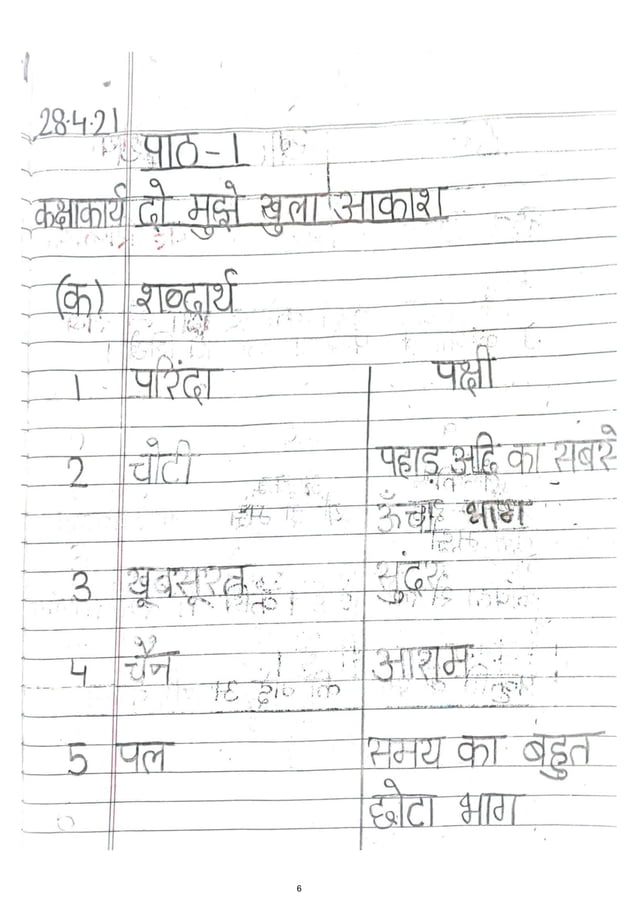 28.4.21
पाठ-1
कक्षाकार्य दो मुझे खुला आकाश
(क) शब्दार्थ
1 परिंदा पक्षी
2 चोटी पहाड़ अदि का सबसे
ऊँचा भाग
3 खूबसूरत सुंदर
4 चैन आराम
5 पल समय का बहुत
छोटा भाग
6